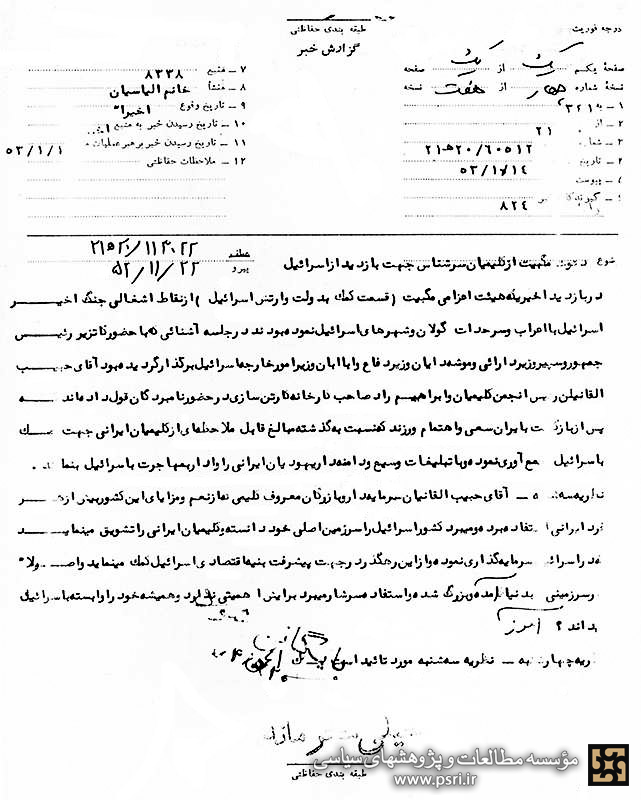 درجه فوریت
طبقه بندی حفاظتی
گزارش خبر
صفحهٔ یکم از یک صفحه
نسخهٔ شماره چهار از هفت نسخه
۱ ـ به ۳۲۱
۲ ـ از ۲۱
۳ ـ شماره ۲۰/۶۰۵۱۲ه‍ ۲۱
۴ ـ تاریخ ۵۳/۱/۱۴
۵ ـ پیوست
۶ ـ گیرندگان خبر
۸۲۴
۷ ـ منبع ۸۳۳۸
۸ ـ منشأ خانم الیاسیان
۹ ـ تاریخ وقوع اخیرا"
۱۰ ـ تاریخ رسیدن خبر به منبع
۱۱ ـ تاریخ رسیدن خبر به رهبر عملیات ۵۳/۱/۱
۱۲ ـ ملاحظات حفاظتی
پیرو ۵۲/۱۱/۲۲
موضوع دعوت مگبیت از کلیمیان سرشناس جهت بازدید از اسرائیل
در بازدید اخیریکه هیئت اعزامی مگبیت (قسمت کمک به دولت و ارتش اسرائیل) از نقاط اشغالی جنگ اخیر
اسرائیل با اعراب و سرحدات گولان و شهرهای اسرائیل نموده بودند در جلسه آشنائی که با حضور کاتزیر رئیس
جمهور و سپیر وزیر دارائی و موشه دایان وزیر دفاع و ابا ابان وزیر امور خارجه اسرائیل برگذار گردیده بود آقای حبیب
القانیان رئیس انجمن کلیمیان و ابراهیم راد صاحب کارخانه کارتن سازی در حضور نامبردگان قول داده‌اند که
پس از بازگشت به ایران سعی و اهتمام ورزند که نسبت به گذشته مبالغ قابل ملاحظه‌ای از کلیمیان ایرانی جهت کمک
به اسرائیل جمع آوری نموده و با تبلیغات وسیع و دامنه‌دار یهودیان ایرانی را وادار به مهاجرت به اسرائیل بنمایند.
نظریه سه‌شنبه ـ آقای حبیب القانیان سرمایه‌دار و بازرگان معروف کلیمی که از نعم و مزایای این کشور بیش از هر
فرد ایرانی استفاده برده و میبرد کشور اسرائیل را سرزمین اصلی خود دانسته و کلیمیان ایرانی را تشویق مینماید
که در اسرائیل سرمایه‌گذاری نموده و از این رهگذر در جهت پیشرفت بنیه اقتصادی اسرائیل کمک مینماید و اصولا"
سرزمینی که بدنیا آمده و بزرگ شده و استفاده سرشار میبرد برایش اهمیتی ندارد و همیشه خود را وابسته به اسرائیل
میداند؟
نظریه چهارشنبه ـ نظریه سه‌شنبه مورد تائید است
طبقه بندی حفاظتی
مؤسسه مطالعات و پژوهشهای سیاسی
www.psri.ir